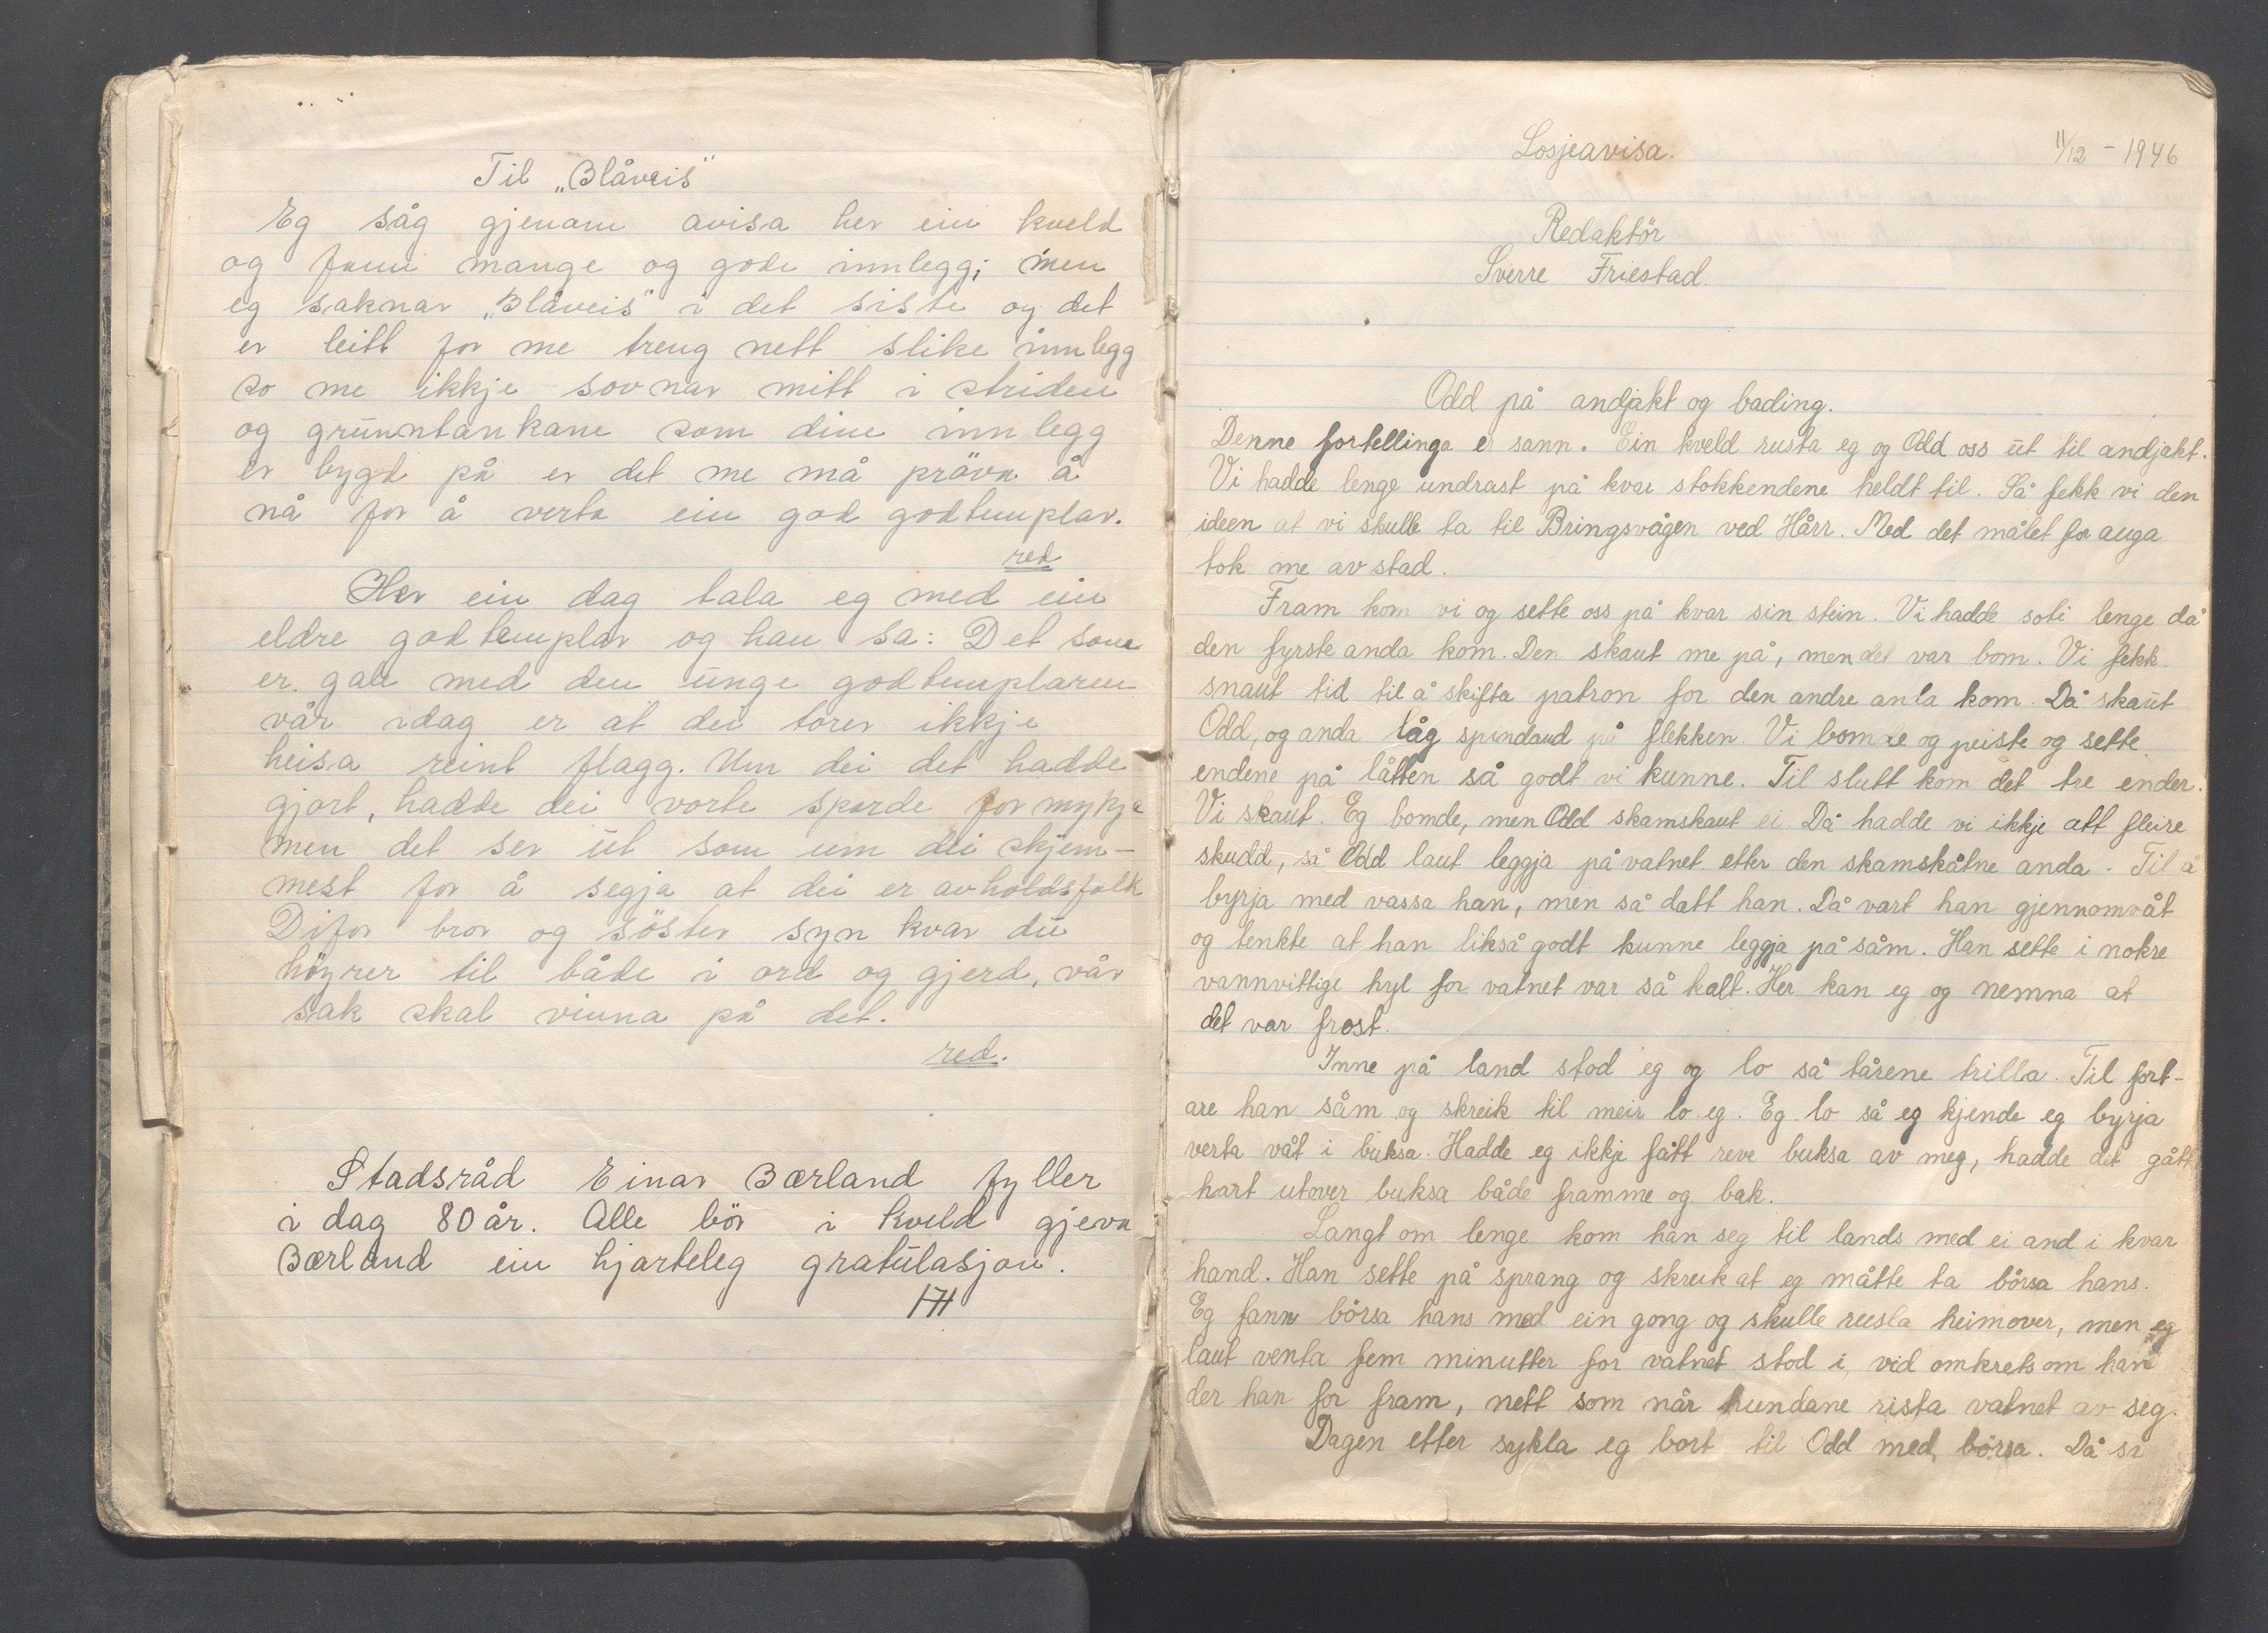 Til „Blåveis"
Eg såg gjenom avisa her ein kveld
og fann mange og gode innlegg; men
eg saknar „Blåveis" i det siste og det
er leitt for me treng nett slike innlegg
so me ikkje sovnar mitt i striden
og grunntankane som dine innlegg
er bygt på er det me må pröva å
nå for å verta ein god godtemplar.
red
Her ein dag tala eg med ein
eldre godtemplar og han sa: Det som
er gale med den unge godtemplaren
vår idag er at dei torer ikkje
heisa reint flagg. Um dei det hadde
gjort, hadde dei vorte sparde for mykje
men det ser ut som um dei skjem-
mest for å segja at dei er avholdsfolk
Difor bror og söster syn kvar du
höyrer til både i ord og gjerd, vår
sak skal vinna på det.
red.
Stadsråd Einar Bærland fyller
i dag 80 år. Alle bör i kveld gjeva
Bærland ein hjarteleg gratulasjon.
Losjeavisa.
11/12 - 1946
Redaktör
Sverre Friestad.
Odd på andjakt og bading.
Denne fortellinga er sann. Ein kveld rusta eg og Odd oss ut til andjakt.
Vi hadde lenge undrast på kvar stokkendene heldt til. Så fekk vi den
ideen at vi skulle ta til Bringsvågen ved Hårr. Med det målet for auga
tok me av stad.
Fram kom vi og sette oss på kvar sin stein. Vi hadde soti lenge då
den fyrste anda kom. Den skaut me på, men det var bom. Vi fekk
snaut tid til å skifta patron for den andre anda kom. Då skaut
Odd, og anda låg spindaud på flekken. Vi bomde og peiste og sette
endene på låtten så godt vi kunne. Til slutt kom det tre ender.
Vi skaut. Eg bomde, men Odd skamskaut ei. Då hadde vi ikkje att fleire
skudd, så Odd laut leggja på vatnet etter den skamskåtne anda. Til å
byrja med vassa han, men så datt han. Då vart han gjennomvåt
og tenkte at han likså godt kunne leggja på såm. Han sette i nokre
vannvittige hyl for vatnet var så kalt. Her kan eg og nemna at
det var frost.
Inne på land stod eg og lo så tårene trilla. Til fort-
are han såm og skreik til meir lo eg. Eg lo så eg kjende eg byrja
verta våt i buksa. Hadde eg ikkje fått reve buksa av meg, hadde det gått
hart utover buksa både framme og bak.
Langt om lenge kom han seg til lands med ei and i kvar
hand. Han sette på sprang og skreik at eg måtte ta börsa hans.
Eg fann börsa hans med ein gong og skulle rusla heimover, men eg
laut venta fem minutter for vatnet stod i vid omkrets om han
der han for fram, nett som når hundane rista vatnet av seg.
Dagen etter sykla eg bort til Odd med börsa. Då sa